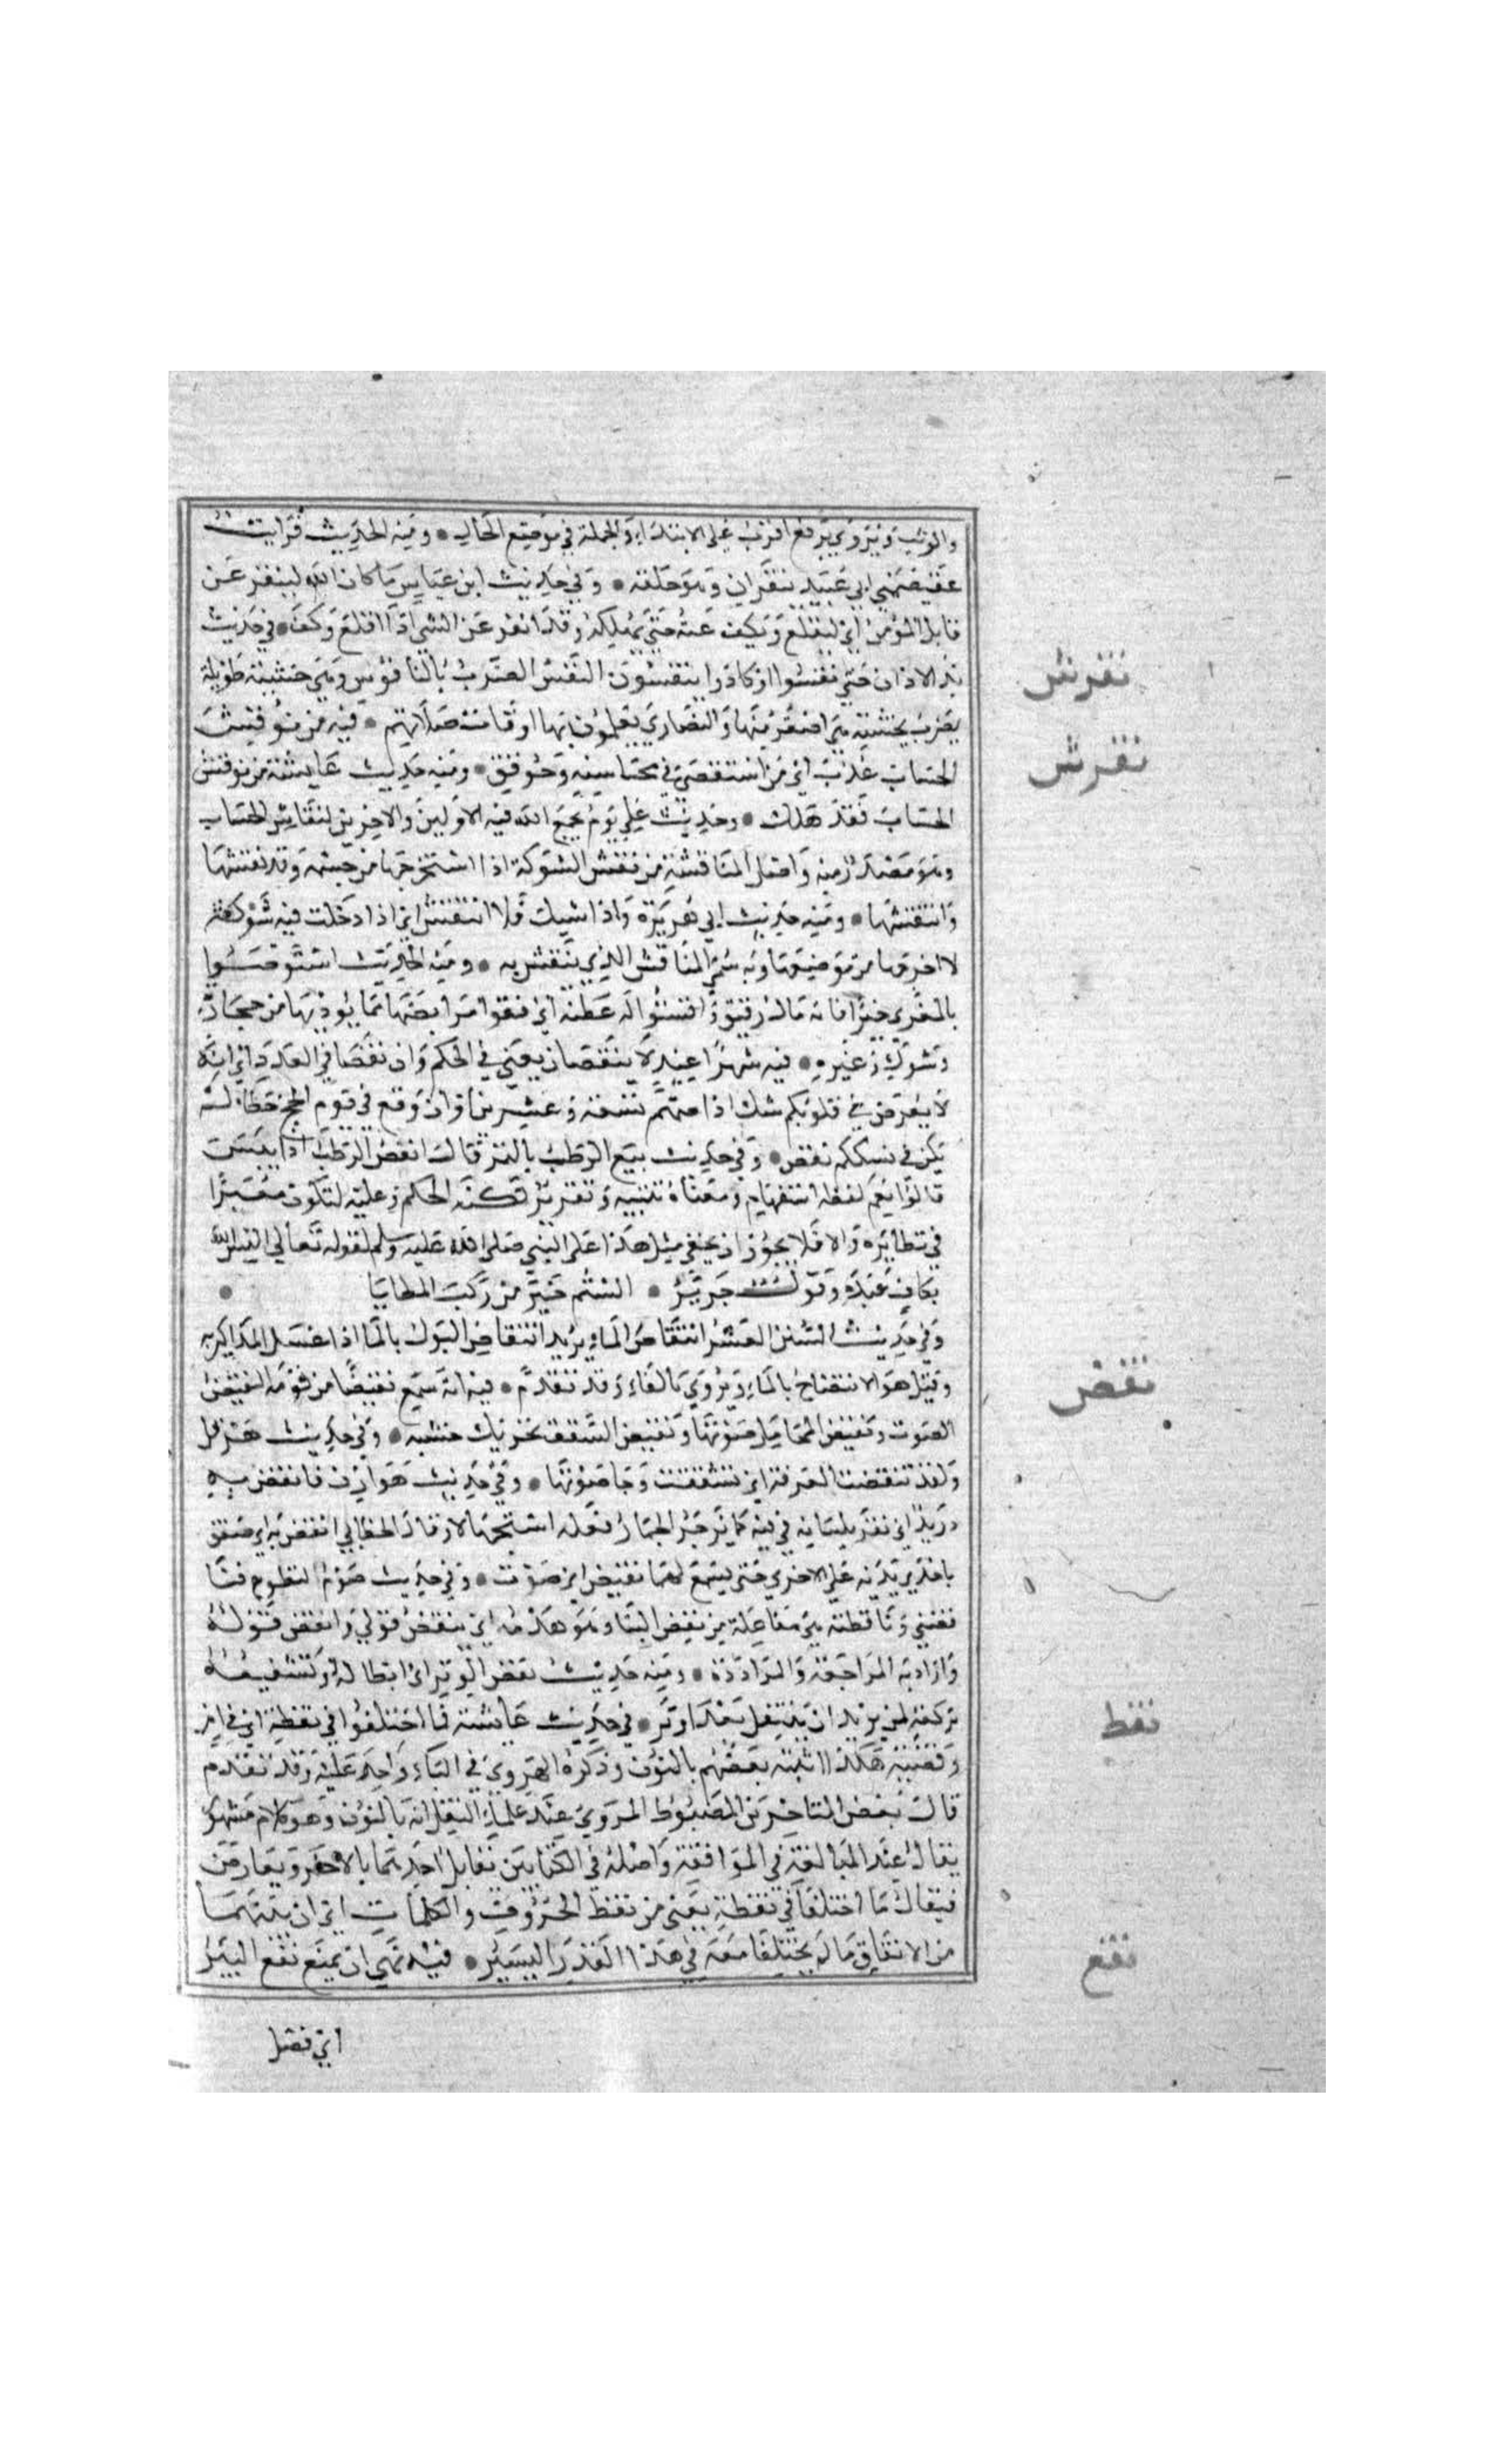 والوثب ويروى برفع اقرب على الابتداء والجملة في موضع الحال • ومنه الحديث فرايت
عقيصتي ابي عبيد تنقزان وهو خلفه • وفي حديث ابن عباس ما كان الله لينقز عن
قاتل المؤمن اي ليقلع ويكف عنه حتي يهلكه وقد انقز عن الشي اذا اقلع وكف • في حديث
بدء الاذان حتي نقسوا او كادوا ينقسون النقس الضرب بالناقوس وهي خشبة طويلة
يضرب بخشبة هي اصغر منها والنصاري يعلمون بها اوقات صلاتهم • فيه من نوقش
الحساب عذب اي من استقصي في محاسبته وحوقق • ومنه حديث عايشة من نوقش
الحساب فقد هلك • وحديث علي يوم يجمع الله فيه الاولين والاخرين لنقاش الحساب
وهو مصدر منه واصل المناقشة من نقش الشوكة اذا استخرجها من جسمه وقد نقشها
وانتقشها • ومنه حديث ابي هريرة واذا شيك فلا انتقش اي اذا دخلت فيه شوكة
لا اخرجها من موضعها وبه سمي المناقش الذي ينقش به • ومنه الحديث استوصوا
بالمعزى خيرا فانه مال رقيق وانقشوا له عطنه اي نقوا مرابضها مما يوذيها من حجارة
وشوك وغيره • فيه شهرا عيد لا ينقصان يعني في الحكم وان نقصا في العدد اي انه
لا يعرض في قلوبكم شك اذا صمتم تسعة وعشرين او ان وقع في يوم الحج خطا لم
يكن في نسككم نقص • وفي حديث بيع الرطب بالتمر قال اينقص الرطب اذا يبس
قالوا نعم لفظه استفهام ومعناه تنبيه وتقرير لكنه الحكم وعليته لتكون معتبرا
في نظائره والا فلا يجوز ان يخفي مثل هذا على النبي صلى الله عليه وسلم لقوله تعالي اليس الله
بكاف عبده وقول جرير • الستم خير من ركب المطايا •
وفي حديث السنن العشر انتقاص الماء يريد انتقاص البول بالما اذا غسل المذاكير به
وقيل هو الانتضاح بالماء ويروى بالفاء وقد تقدم • فيه انه سمع نقيضا من فوقه النقيض
الصوت ونقيض المحامل صوتها ونقيض السقف تحريك خشبه • وفي حديث هرقل
ولقد تنقضت الغرفة اي تشققت وجا صوتها • وفي حديث هوازن فانقض به
دريد اي نقر بلسانه في فيه كما يزجر الحمار فعله استجهالا وقال الخطابي انقض به اي صفق
باحدي يديه علي الاخرى حتي يسمع لهما نقيض اي صوت • وفي حديث صوم التطوع
فناقضني وناقضته هي مفاعلة من نقض البنا وهو هدمه اي ينقض قولي وانقض قوله
واراد به المراجعة والمراددة • ومنه حديث نقض الوتر اي ابطاله وتشفيعه
بركعة لمن يريد ان يتنفل بعد ان اوتر • في حديث عايشة فما اختلفوا في نقطة اي في امر
وقضية هكذا اثبته بعضهم بالنون وذكره الهروي في الباء واخذ عليه وقد تقدم
قال بعض المتاخرين المضبوط المروي عند علماء النقل انه بالنون وهو كلام مشهور
يقال عند المبالغة في الموافقة واصله في الكتابين تقابل احدهما بالاخر ويعارض
فيقال ما اختلفا في نقطة يعني من نقط الحروف والكلمات اي ان بينهما
من الاتفاق ما لم يختلفا معه في هذا القدر اليسير • فيه نهي ان يمنع نقع البير
نقس
نقش
نقض
نقط
نقع
اي فضل